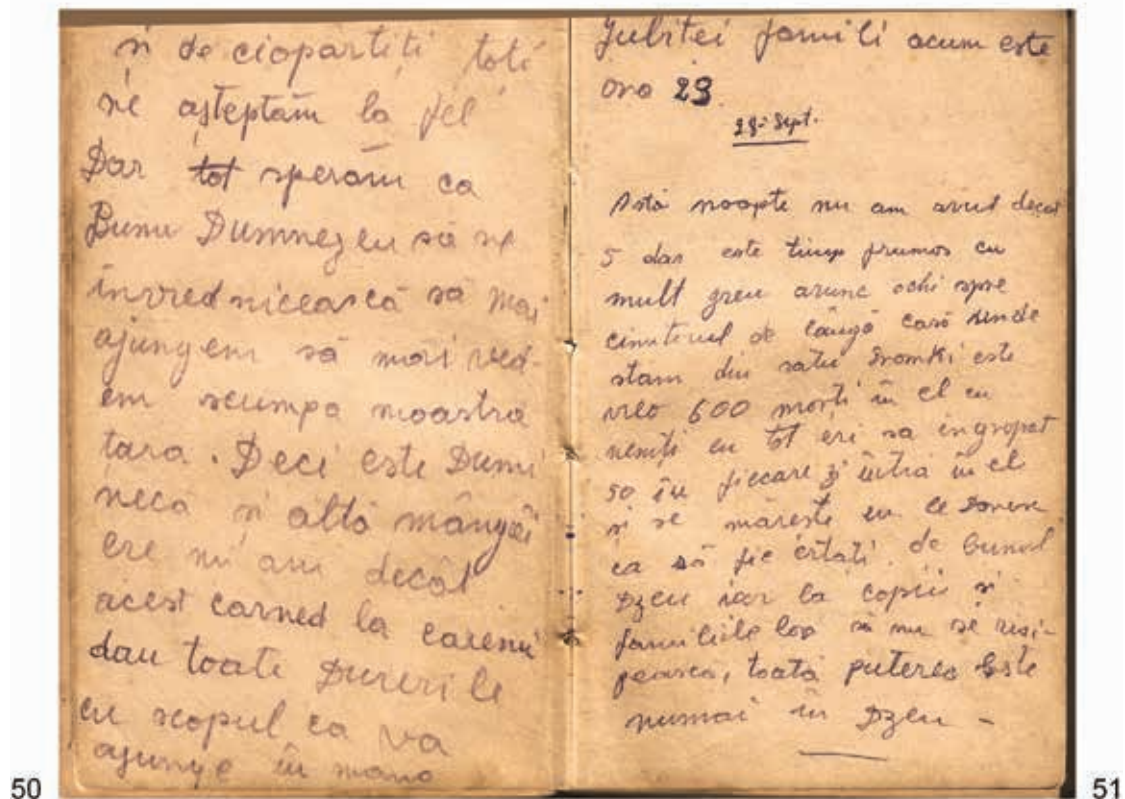 și de ciopartiți toti
ne așteptam la fel
Dar tot sperăm ca
Bunu Dumnezeu să ne
învrednicească să mai
ajungem să mai ved-
em scumpa noastră
țara. Deci este Dumi
necă și altă mângâi
ere nu am decât
acest carned la carenu
dau toate Dureri le
cu scopul ca va
ajunge în mana
50
Iubitei famili acum este
ora 23
28 Sept.
Astă noapte nu am avut decât
5 dar este timp frumos cu
mult greu arunc ochi spre
cimiterul de lângă casă unde
stam din satu Dromki este
vreo 600 morți în el cu
nemți cu tot eri sa îngropat
50 în fiecare zi intra în el
și se mărește eu le doresc
ca să fie ertați de bunul
Dzeu iar la copiii și
familiile lor să nu se risi-
pească, toată puterea este
numai în Dzeu -
51